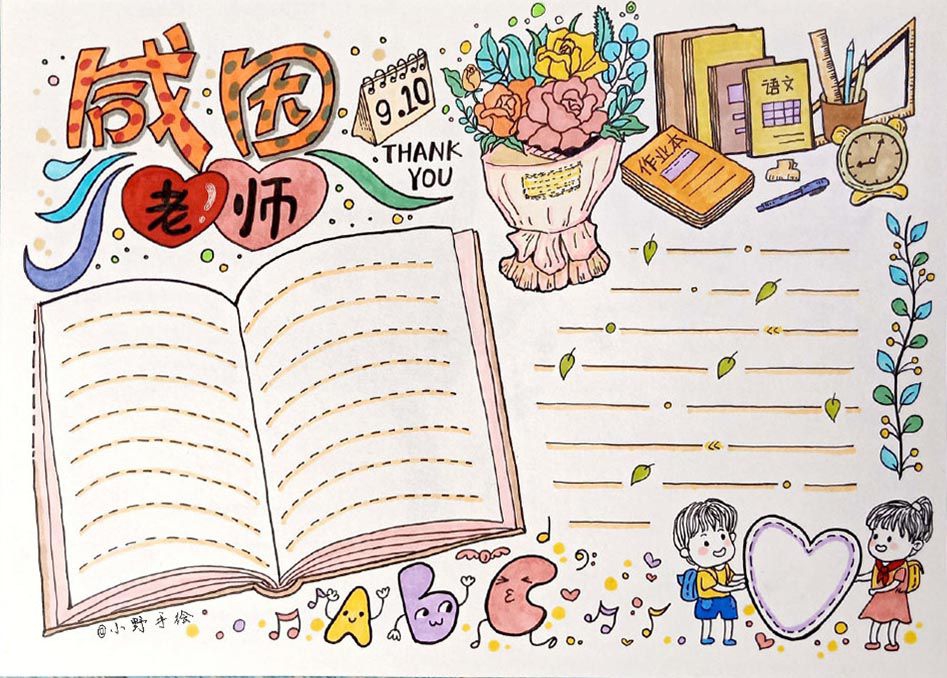 感恩
9.10
THANK
YOU
老师
语文
作业本
AbC
@小野手绘